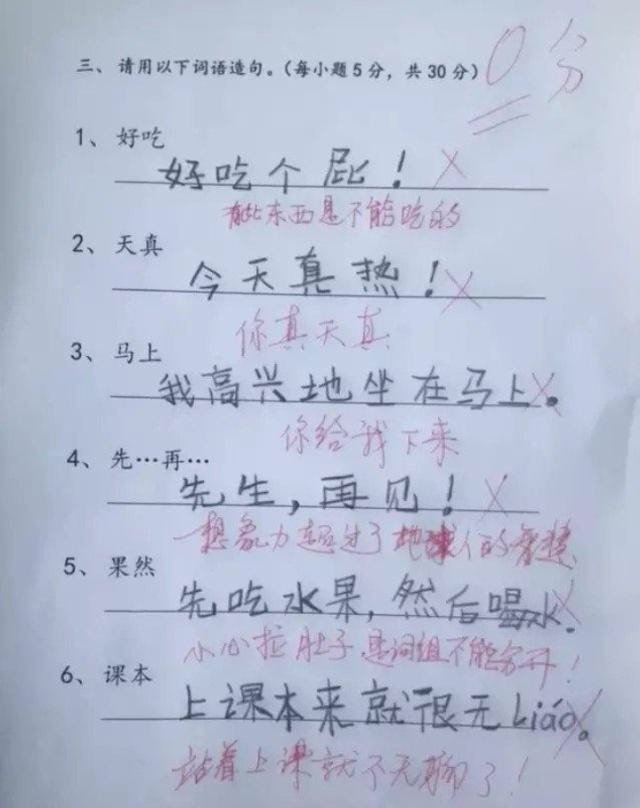 三、请用以下词语造句。(每小题5分，共30分)
0分
1、好吃
好吃个屁！
有些东西是不能吃的
2、天真
今天真热！
你真天真
3、马上
我高兴地坐在马上。
你给我下来
4、先…再…
先生，再见！
想象力超过了地球人的智慧
5、果然
先吃水果，然后喝水.
小心拉肚子 是词组不能分开！
6、课本
上课本来就很无liáo。
站着上课就不无聊了！